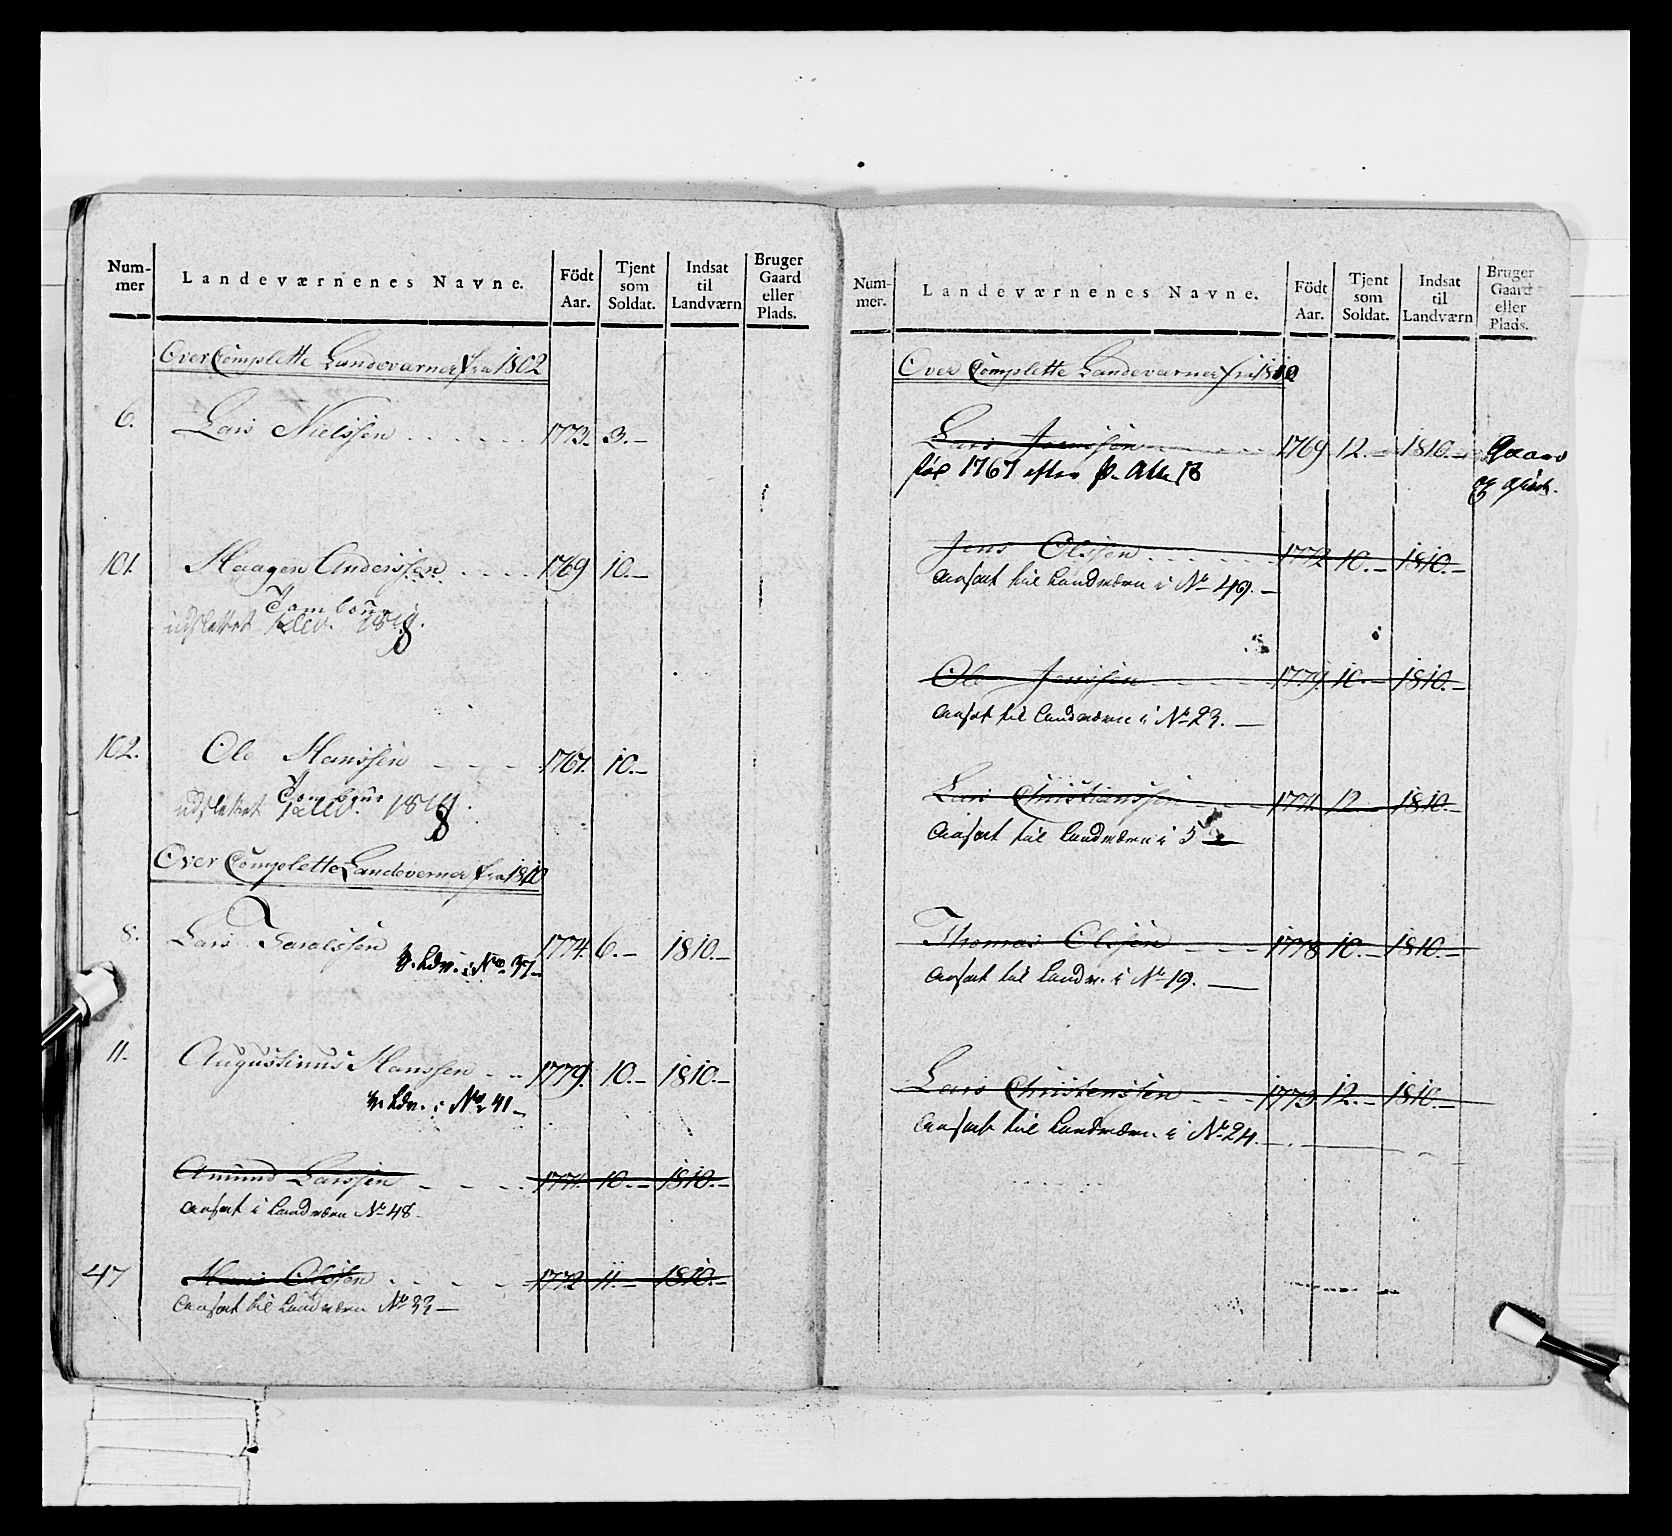 Num-
mer
Landeværnenes Navne.
Födt
Aar.
Tjent
som
Soldat.
Indsat
til
Landværn
Bruger
Gaard
eller
Plads.
Over Complette Landeværner fra 1802
6. Lars Nielssen 1773. 3.
101. Haagen Anderssen 1769 10.
Tambour
udslettet
102. Ole Hanssen 1767. 10.
Tambour
udslettet
Over Complette Landeverner fra 1810
8. Lars 1774. 6. 1810.
Ldv. i No. 37
11. Augustinus Hanssen 1779. 10. 1810.
Ldv. i No 41
Amund Larssen 1771. 10. 1810.
ansat i Landværn No 48
47 Hans Olssen 1772 11. 1810.
ansat til Landværn No 33
Num-
mer.
Landeværnenes Navne.
Födt
Aar.
Tjent
som
Soldat.
Indsat
til
Landværn
Bruger
Gaard
eller
Plads.
Over Complette Landeværner fra 1810
Lars Jenssen 1769 12. 1810. Gaard
1767 efter
Jens Olssen 1772 10. 1810.
ansat til Landværn i No 49.
Ole Jenssen 1779. 10. 1810.
ansat til Landværn i No 23.
Lars Christianssen 1771. 12 1810.
ansat til Landværn i
Thomas Olssen 1778 10. 1810.
ansat til Landv. i No 19.
Lars Christenssen 1773. 12. 1810.
ansat til Landværn i No 24.